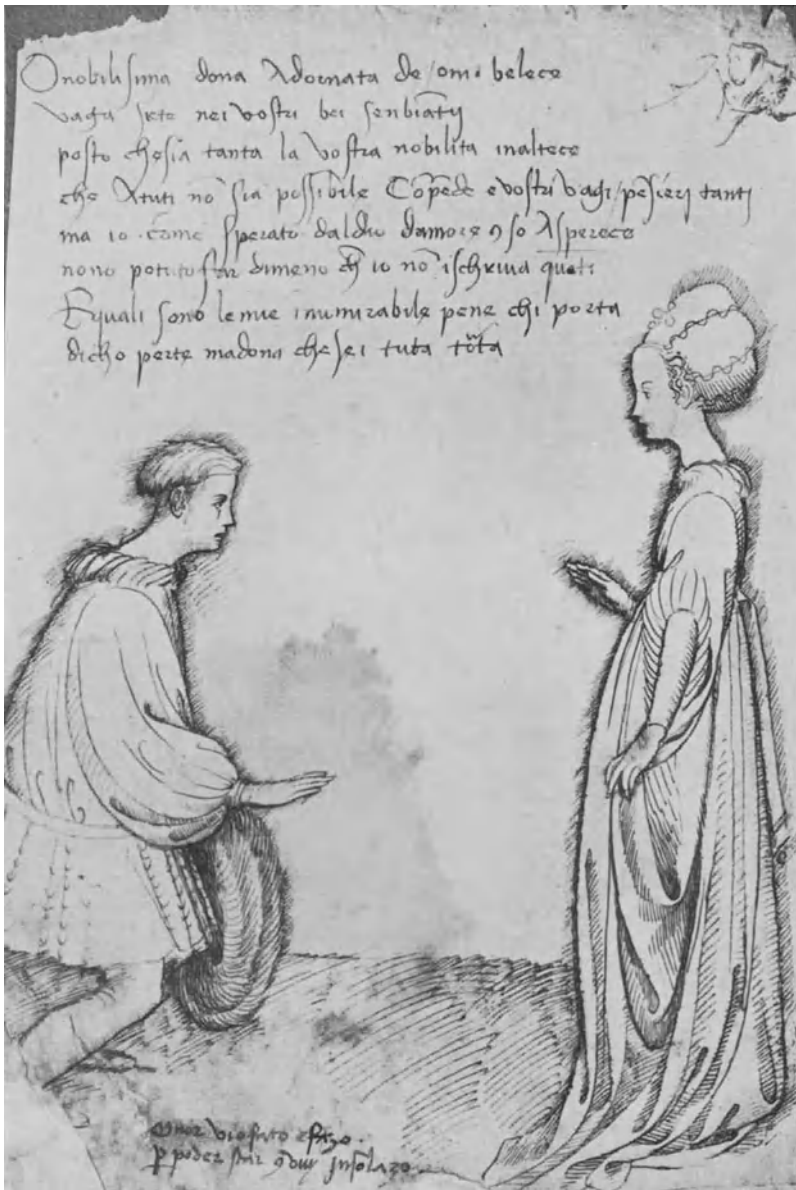 O nobilisima dona Adornata de omi belece
vaga sete nei vostri bei senbiāty
posto che sia tanta la vostra nobilita in altece
che A tuti nō sia possibile Cōpēde e vostri vagi pēsierj tantj
ma io come sperato dal dio damore
nono potuto star dimeno ch̄ io nō ischriua
E quali sono le mie inumirabile pene chi porta
dicho perte madona che sei tuta
p̄ poder star